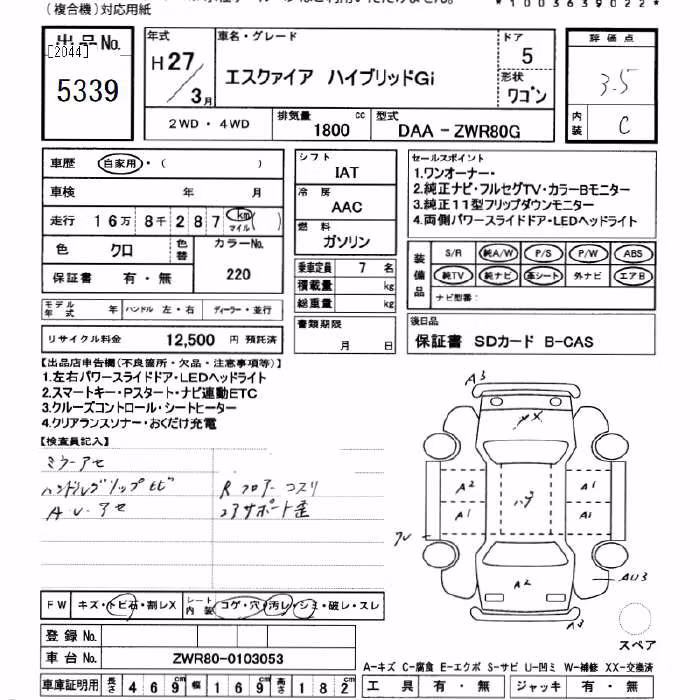 (複合機)対応用紙
*1003639022**
出品No.
[2044]
5339
年式
H27/3月
車名・グレード
エスクァイア ハイブリッドGi
ドア
5
形状
ワゴン
評価点
3.5
内装
C
2WD・4WD
排気量
1800 cc
型式
DAA-ZWR80G
車歴 自家用・( )
車検 年 月
走行 16万8千287 km マイル( )
色 クロ
色替
カラーNo.
220
保証書 有・無
モデル年式 年
ハンドル 左・右
ディーラー・並行
リサイクル料金 12,500 円 預託済
シフト
IAT
冷房
AAC
燃料
ガソリン
乗車定員 7 名
積載量 kg
総重量 kg
書類期限
月 日
セールスポイント
1.ワンオーナー・
2.純正ナビ・フルセグTV・カラーBモニター
3.純正11型フリップダウンモニター
4.両側パワースライドドア・LEDヘッドライト
装備品
S/R 純A/W P/S P/W ABS
純TV 純ナビ 革シート 外ナビ エアB
ナビ型番:
後日品
保証書 SDカード B-CAS
【出品店申告欄(不良箇所・欠品・注意事項等)】
1.左右パワースライドドア・LEDヘッドライト
2.スマートキー・Pスタート・ナビ連動ETC
3.クルーズコントロール・シートヒーター
4.クリアランスソナー・おくだけ充電
【検査員記入】
ミラーアセ
ハンドルグリップヒビ
AV-アセ
Rフロアーコスリ
コアサポート歪
A3
XX
A2
A1
ハゲ
A1
A1
ワレ
A2
AU3
A3
スペア
FW キズ・トビ石・割レX
シート内装 コゲ・穴・汚レ・シミ・破レ・スレ
登録No.
車台No. ZWR80-0103053
車庫証明用 長さ 469cm 幅 169cm 高さ 182cm
A-キズ C-腐食 E-エクボ S-サビ U-凹ミ W-補修 XX-交換済
工具 有・無 ジャッキ 有・無